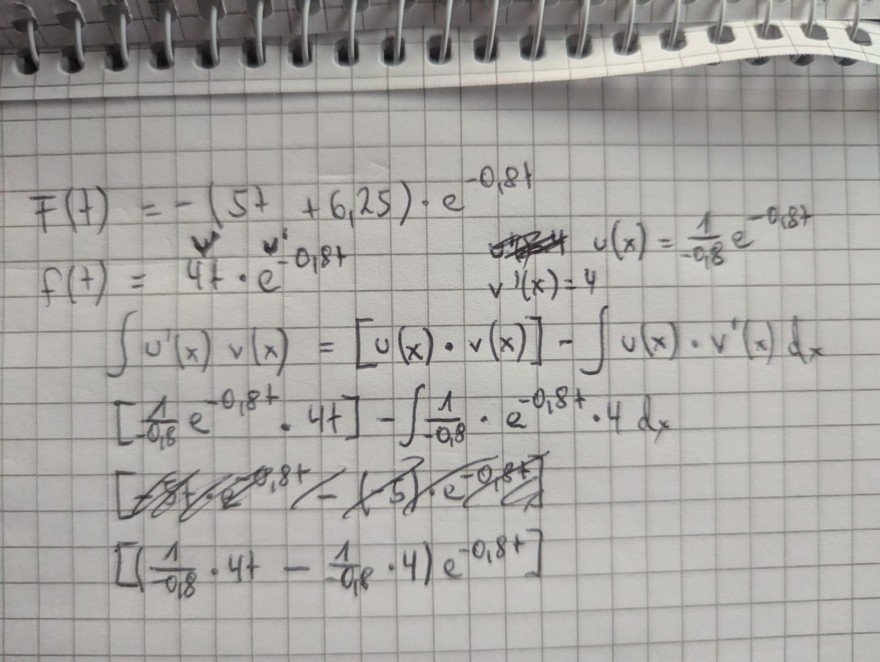 F(t) = -(5t + 6,25) · e^-0,8t
v u'
f(t) = 4t · e^-0,8t
u(x) = 1/-0,8 e^-0,8t
v'(x) = 4
∫ u'(x) v(x) = [u(x) · v(x)] - ∫ u(x) · v'(x) dx
[1/-0,8 e^-0,8t · 4t] - ∫ 1/-0,8 · e^-0,8t · 4 dx
[(1/-0,8 · 4t - 1/-0,8 · 4) e^-0,8t]